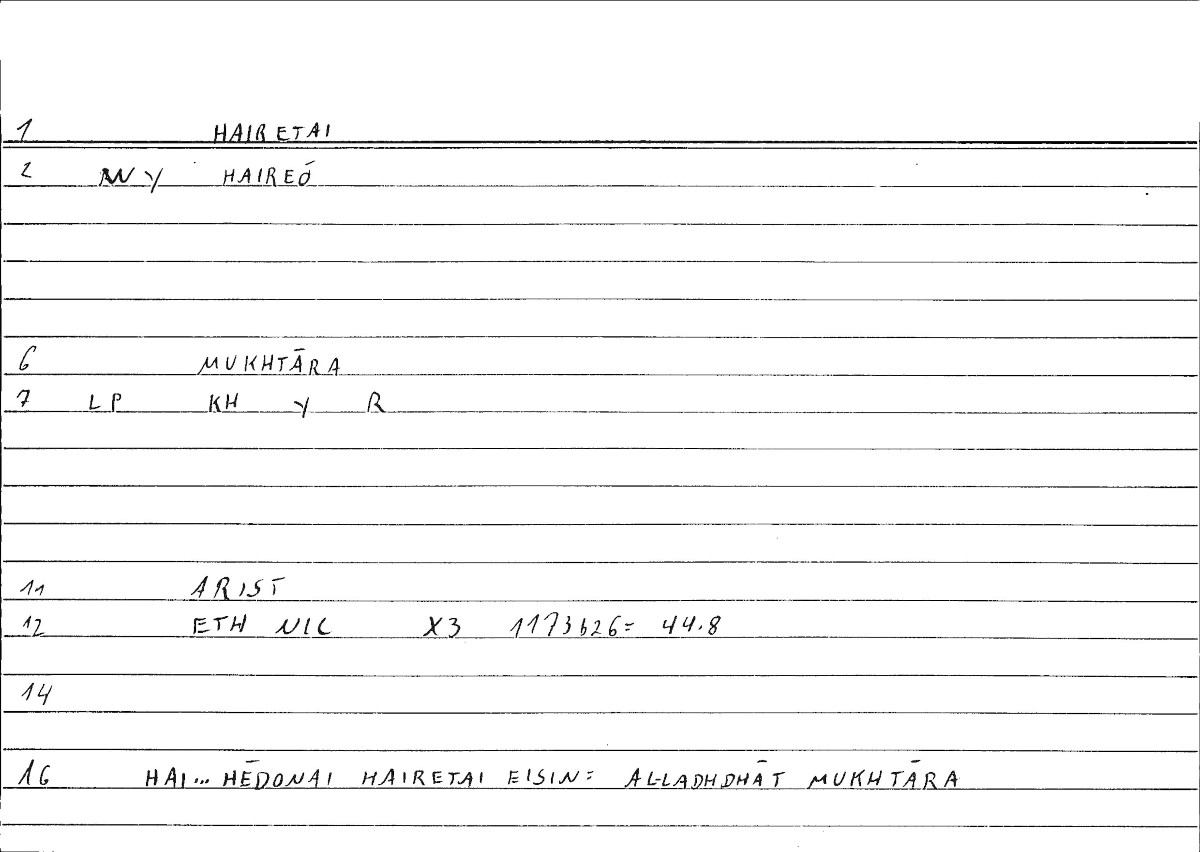 1 HAIRETAI
2 WY HAIREŌ
6 MUKHTĀRA
7 LP KH Y R
11 ARIST
12 ETH NIC X3 1173b26= 44.8
14
16 HAI... HĒDONAI HAIRETAI EISIN= AL-LADHDHĀT MUKHTĀRA